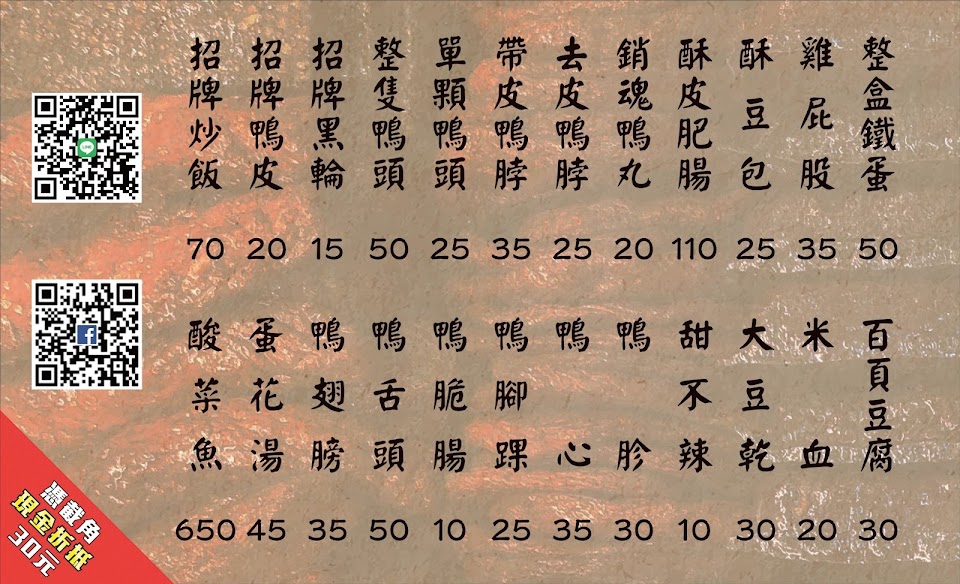 招牌炒飯 70
招牌鴨皮 20
招牌黑輪 15
整隻鴨頭 50
單顆鴨頭 25
帶皮鴨脖 35
去皮鴨脖 25
銷魂鴨丸 20
酥皮肥腸 110
酥豆包 25
雞屁股 35
整盒鐵蛋 50
酸菜魚 650
蛋花湯 45
鴨翅膀 35
鴨舌頭 50
鴨脆腸 10
鴨腳踝 25
鴨心 35
鴨胗 30
甜不辣 10
大豆乾 30
米血 20
百頁豆腐 30
憑截角
現金折抵
30元